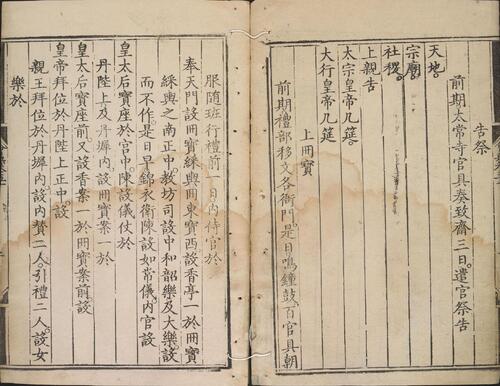 告祭
前期太常寺官具奏致齋三日。遣官祭告
天地。
宗廟。
社稷。
上親告
太宗皇帝几筵。
大行皇帝几筵。
上冊寶
前期禮部移文各衙門。是日鳴鐘鼓百官具朝
服隨班行禮前一日。內侍官於
奉天門設冊寶綵輿冊東寶西設香亭一於冊寶
綵輿之南正中。教坊司設中和韶樂及大樂。設
而不作是日早錦衣衛陳設如常儀。內官設
皇太后寶座於宮中陳設儀仗於
丹陛上及丹墀內設冊寶案一於
皇太后寶座前又設香案一於冊寶案前設
皇帝拜位於丹陛上正中設
親王拜位於丹墀內設內贊二人。引禮二人。設女
樂於